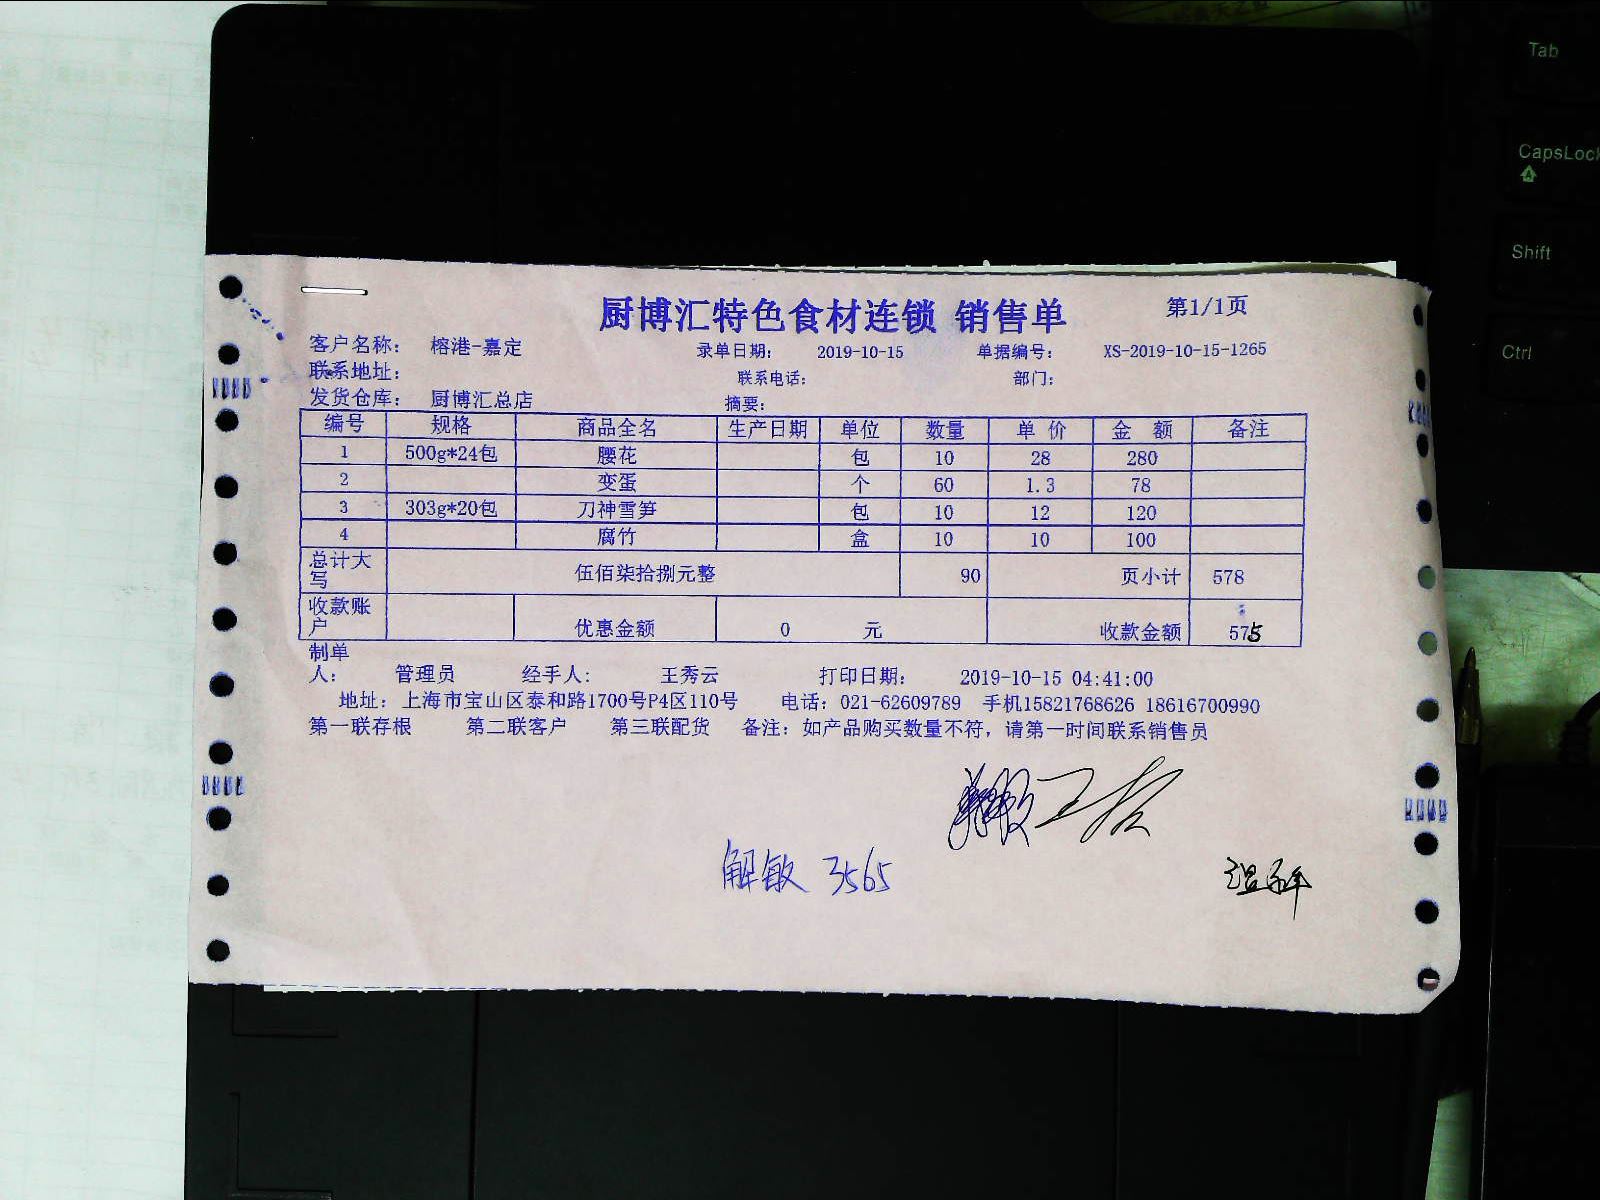 Tab
CapsLock
Shift
Ctrl
厨博汇特色食材连锁 销售单 第1/1页
客户名称： 榕港-嘉定 录单日期： 2019-10-15 单据编号： XS-2019-10-15-1265
联系地址： 联系电话： 部门：
发货仓库： 厨博汇总店 摘要：
编号 规格 商品全名 生产日期 单位 数量 单 价 金 额 备注
1 500g*24包 腰花 包 10 28 280
2 变蛋 个 60 1.3 78
3 303g*20包 刀神雪笋 包 10 12 120
4 腐竹 盒 10 10 100
总计大写 伍佰柒拾捌元整 90 页小计 578
收款账户 优惠金额 0 元 收款金额 575
制单人： 管理员 经手人： 王秀云 打印日期： 2019-10-15 04:41:00
地址：上海市宝山区泰和路1700号P4区110号 电话：021-62609789 手机15821768626 18616700990
第一联存根 第二联客户 第三联配货 备注：如产品购买数量不符，请第一时间联系销售员
解敏 3565